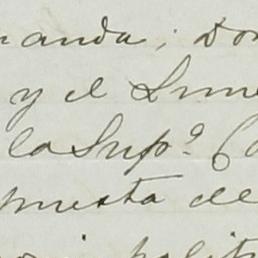 randa; Don
y el Sume
la Sup.º Co
puesta de
polit